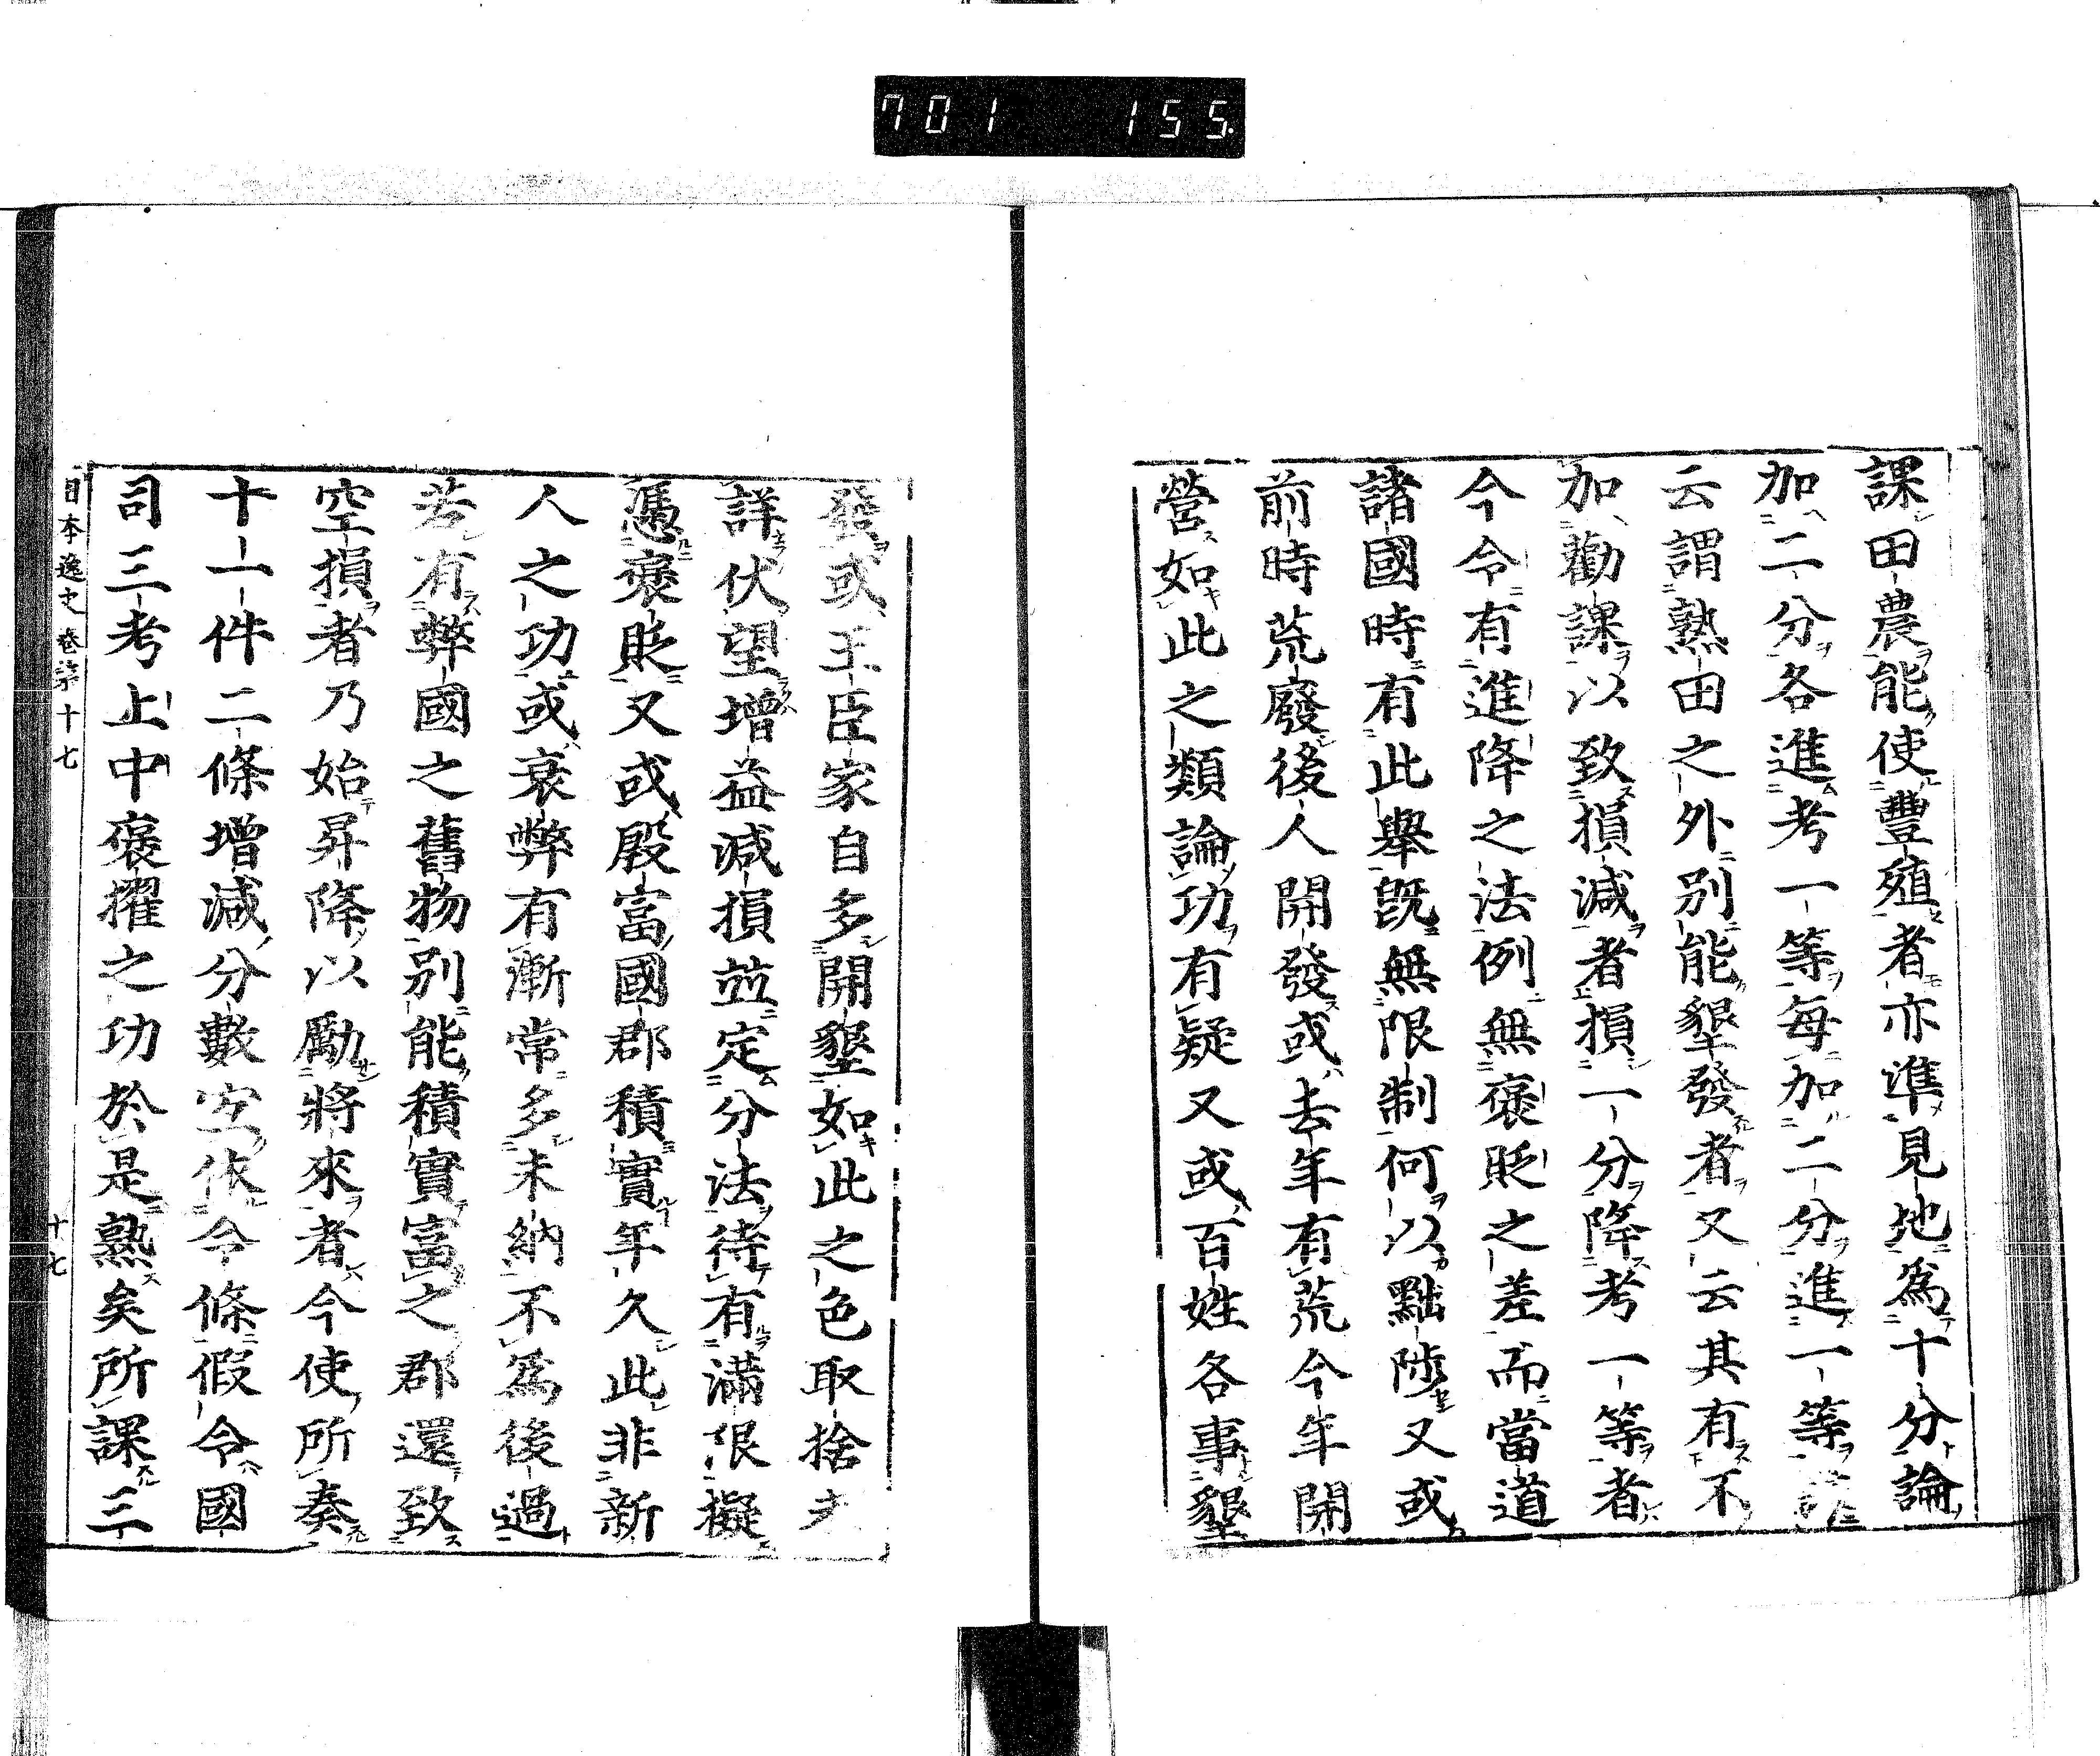 701 155
課田農能使豐殖者亦準見地為十分論
加二分各進考一等每加二分進一等
云謂熟田之外別能墾發者又云其有不
加勸課以致損減者損一分降考一等者
今令有進降之法例無褒貶之差而當道
諸國時有此舉既無限制何以黜陟又或
前時荒廢後人開發或去年有荒今年開
營如此之類論功有疑又或百姓各事墾
發或王臣家自多開墾如此之色取捨
詳伏望增益減損並定分法待有滿限擬
憑褒貶又或殷富國郡積實年久此非新
人之功或衰弊有漸常多未納不爲後過
若有弊國之舊物別能積實富之郡還致
空損者乃始昇降以勵將來者今使所奏
十一件二條增減分數依令條假令國
司三考上中褒擢之功於是熟矣所課三
日本逸史 卷第十七 十七